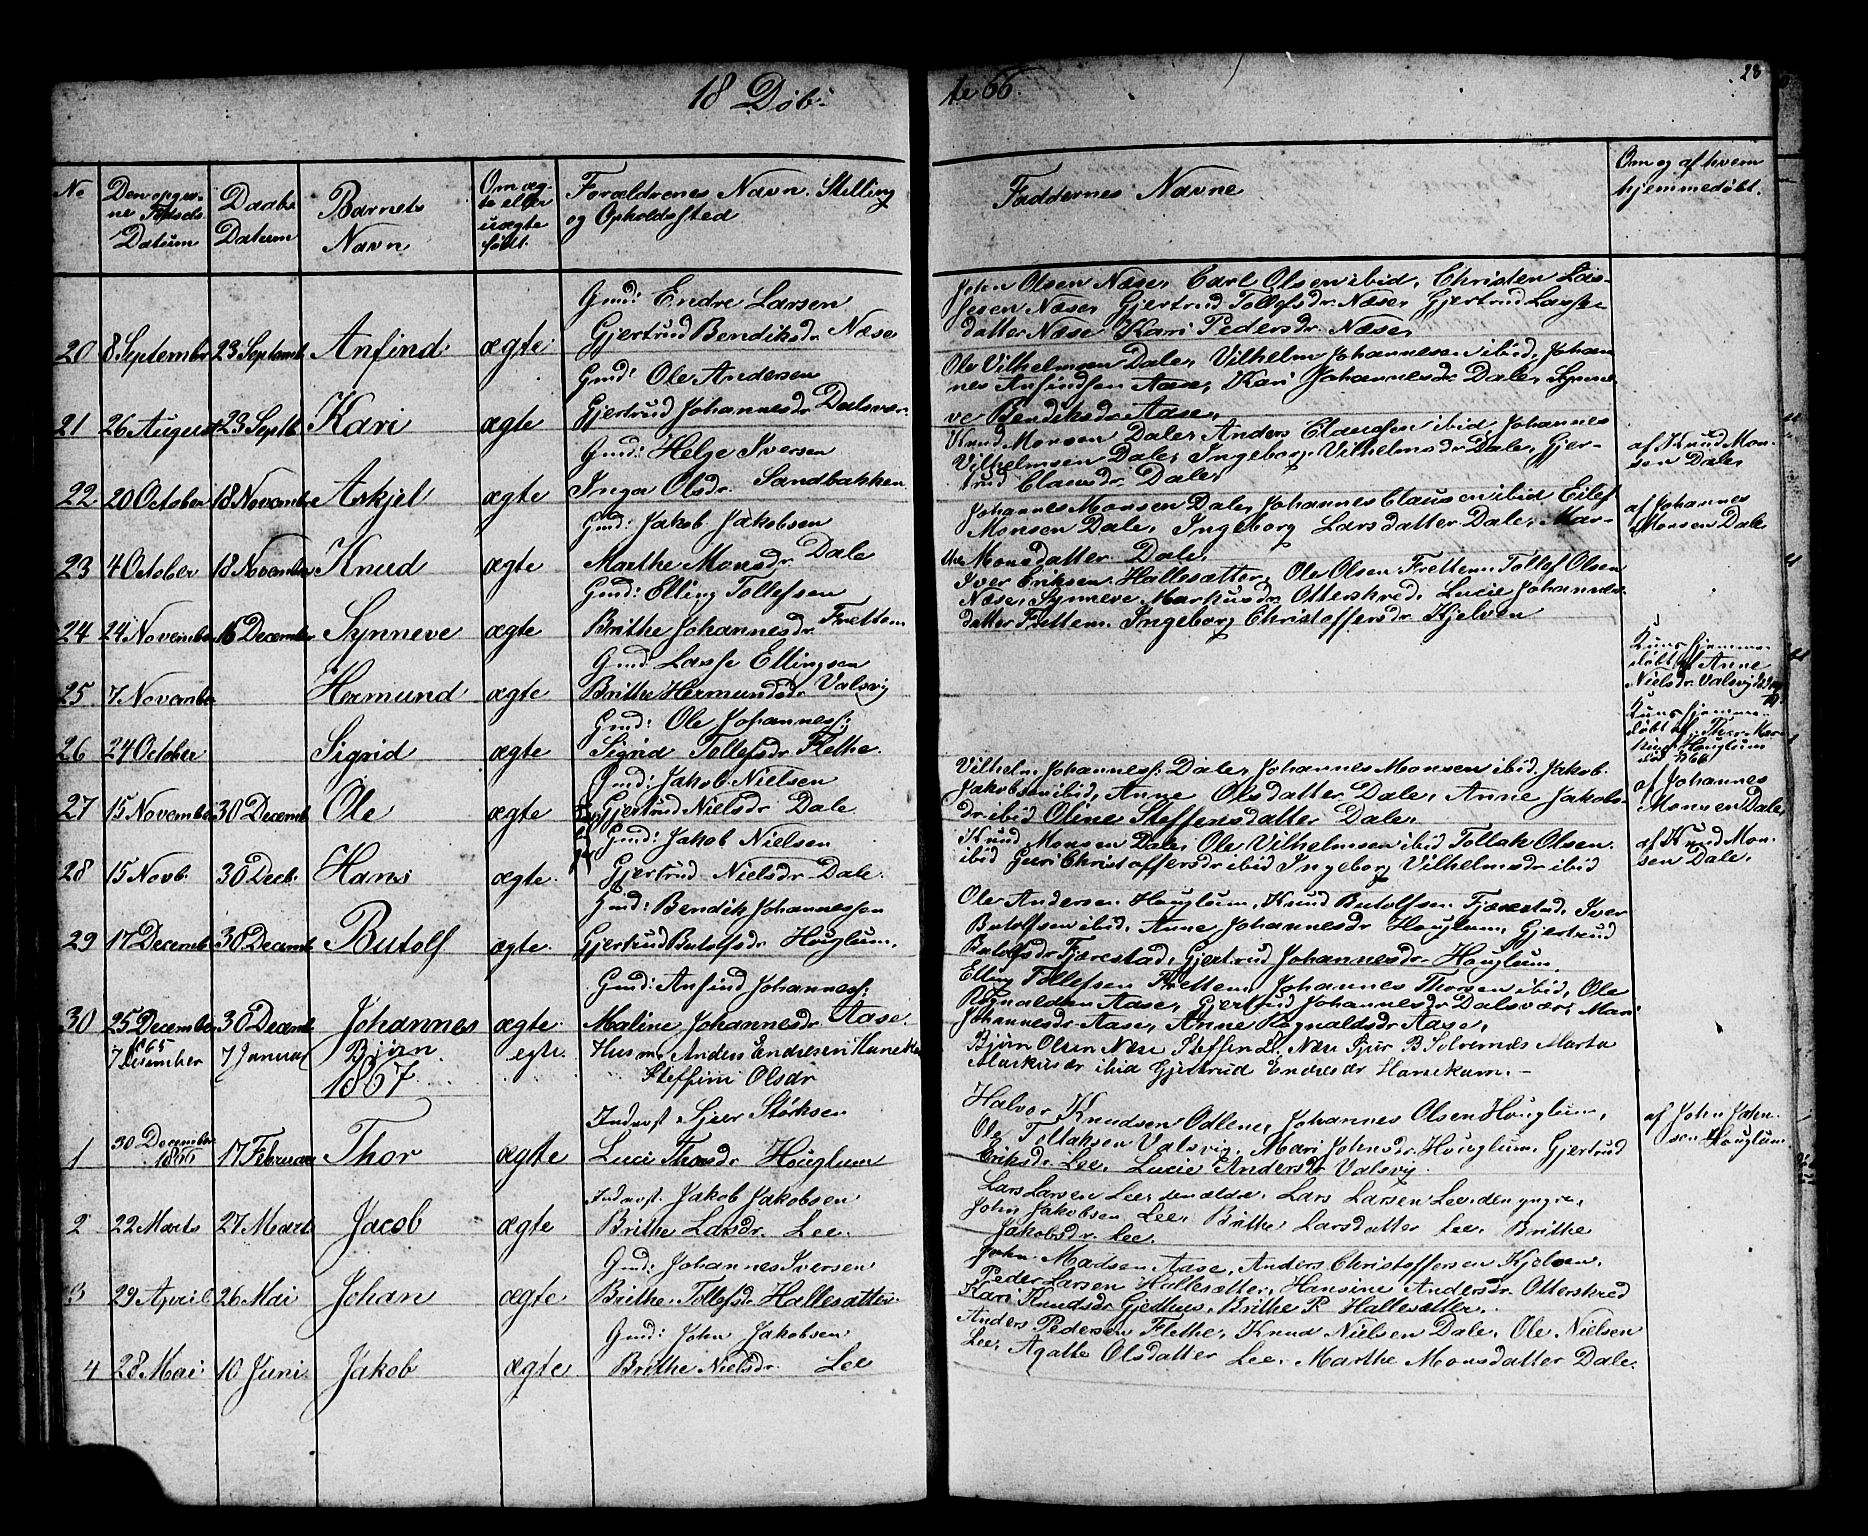 18 Døb-
te 66.
28
No
Den opgiv-
ne Fødsels
Datum
Daabs
Datum
Barnets
Navn
Om æg-
te eller
uægte
født.
Forældrenes Navn. Stilling
og Opholdssted
Faddernes Navne
Om og af hvem
hjemmedøbt.
Gmd: Endre Larsen
20 8 Septembr 23 Septemb Anfind ægte Gjertrud Bendiksdr. Næse
John Olsen Næse, Carl Olsen ibid, Christen Las-
sesen Næse, Gjertrud Tollefsdr. Næse, Gjertrud Lasse-
datter Næse Kari Pedersdr. Næse,
Gmd: Ole Andersen
21 26 August 23 Septb Kari ægte Gjertrud Johannesdr Dalsvær.
Ole Vilhelmsen Dale, Vilhelm Johannesen ibid, Johan
nes Anfindsen Aase, Kari Johannesdr Dale, Synne
ve Bendiksdr Aase,
Gmd: Helge Iversen
22 20 October 18 Novembr Askjel ægte Inga Olsdr. Sandbakken
Knud Monsen Dale, Anders Clausen ibid Johannes
Vilhelmsen Dale, Ingeborg Vilhelmsdr Dale, Gjer-
trud Clausdr. Dale,
af Knud Mon-
sen Dale,
Gmd: Jakob Jakobsen
23 4 October 18 November Knud ægte Marthe Monsdr. Dale
Johannes Monsen Dale, Johannes Clausen ibid Eilef
Monsen Dale, Ingeborg Larsdatter Dale, Mar-
the Monsdatter Dale,
af Johannes
Monsen Dale
Gmd: Elling Tollefsen
24 24 November 16 December Synneve ægte Brithe Johannesdr. Frettem
Iver Eriksen Hallesætter, Ole Olsen Frettem Tollef Olsen
Næse, Synneve Markusdr. Otterskred, Lucie Johannes-
datter Frettem. Ingeborg Christoffersdr. Kjelven
Gmd. Lasse Ellingsen
25 7 Novembr Hermund ægte Brithe Hermundsdr. Valsvig
Kuns hjemme-
døbt af Anne
Nielsdr. Valsvig
Gmd: Ole Johanness:
26 24 October Sigrid ægte Sigrid Tollefsdr. Flethe.
Kuns hjemme-
døbt af Thor
Houglum
Gmd: Jakob Nielsen
27 15 Novembr 30 Decemb Ole ægte Gjertrud Nielsdr Dale
Vilhelm Johanness: Dale, Johannes Monsen ibid. Jakob
Jakobsen ibid, Anne Olsdatter Dale, Anne Jakobs-
dr ibid Oline Steffensdatter Dale,
af Johannes
Monsen Dale,
Gmd: Jakob Nielsen
28 15 Novb. 30 Decb. Hans ægte. Gjertrud Nielsdr Dale.
Knud Monsen Dale, Ole Vilhelmsen ibid Tollak Olsen
ibid Guri Christoffersdr ibid Ingeborg Vilhelmsdr ibid
af Knud Mon-
sen Dale.
Gmd: Bendik Johannessen
29 17 Decemb 30 Decemb. Butolf ægte. Gjertrud Butolfsdr. Houglum.
Ole Andersen Houglum, Knud Butolfsen Fjærestad, Iver
Butolfsen ibid, Anne Johannesdr Houglum, Gjertrud
Butolfsdr Fjærestad, Gjertrud Johannesdr. Houglum.
Gmd: Anfind Johanness:
30 25 December 30 Decemb. Johannes ægte. Maline Johannesdr. Aase.
Elling Tollefsen Frettem, Johannes Thorsen ibid, Ole
Rognaldsen Aase, Gjertrud Johannesdr Dalsvær, Mari
Johannesdr Aase, Anne Rognaldsdr Aase,
1865
7 Desember 7 Januar Bjørn egte. Husm. Anders Endresen
Steffine Olsdr
Bjørn Olsen Næse Steffen L. Næse Sjur B Solvernæs Marta
Markusdr ibid Gjertrud Endresdr Hamekam. -
1867.
Inderst Sjur Størksen
1 30 December 1866 17 Februar Thor ægte Luci Thorsdr Houglum
Halvor Knudsen Odlene, Johannes Olsen Houglum,
Ole Tollaksen Valsvig, Mari Johnsdr. Houglum, Gjertrud
Eriksdr. Lee, Lucie Andersdr Valsvig.
af John John-
sen Houglum
Inderst. Jakob Jakobsen
2 22 Marts 27 Mart Jacob ægte Brithe Larsdr. Lee.
Lars Larsen Lee, den ældre, Lars Larsen Lee, den yngre,
John Jakobsen Lee, Brithe Larsdatter Lee, Brithe
Jakobsdr. Lee.
Gmd: Johannes Iversen
3 29 April 26 Mai Johan ægte Brithe Tollefsdr. Hallesætter.
John Madsen Aase, Anders Christoffersen Kjelven,
Peder Larsen Hallesætter, Hansine Andersdr. Otterskred
Kari Knudsdr Gjedhus, Brithe P. Hallesætter,
Gmd: John Jakobsen
4 28 Mai 10 Juni. Jakob ægte Brithe Nielsdr. Lee
Anders Pedersen Flethe, Knud Nielsen Dale, Ole Nielsen
Lee, Agatte Olsdatter Lee, Marthe Monsdatter Dale.